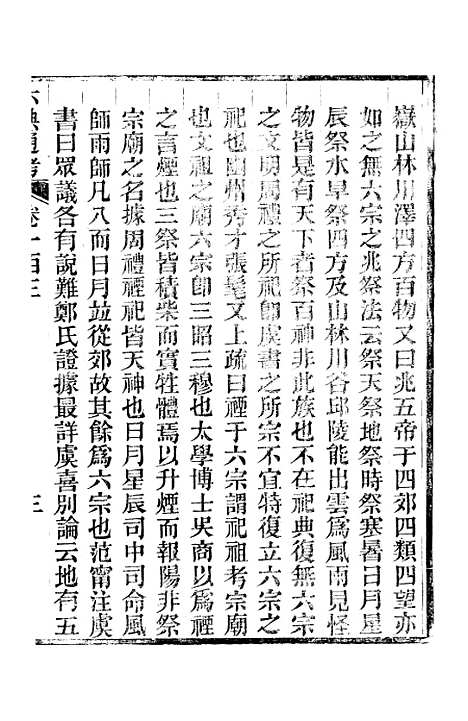 嶽山林川澤四方百物又曰兆五帝于四郊四類四望亦
如之無六宗之兆祭法云祭天祭地祭時祭寒暑日月星
辰祭水旱祭四方及山林川谷邱陵能出雲爲風雨見怪
物皆是有天下者祭百神非此族也不在祀典復無六宗
之文明周禮之所祀卽虞書之所宗不宜特復立六宗之
祀也幽州秀才張髦又上疏曰禋于六宗謂祀祖考宗廟
也文祖之廟六宗卽三昭三穆也太學博士吳商以爲禋
之言煙也三祭皆積柴而實牲體焉以升煙而報陽非祭
宗廟之名據周禮禋祀皆天神也日月星辰司中司命風
師雨師凡八而日月並從郊故其餘爲六宗也范甯注虞
書曰眾議各有說難鄭氏證據最詳虞喜別論云地有五
六典通考
卷一百三
三